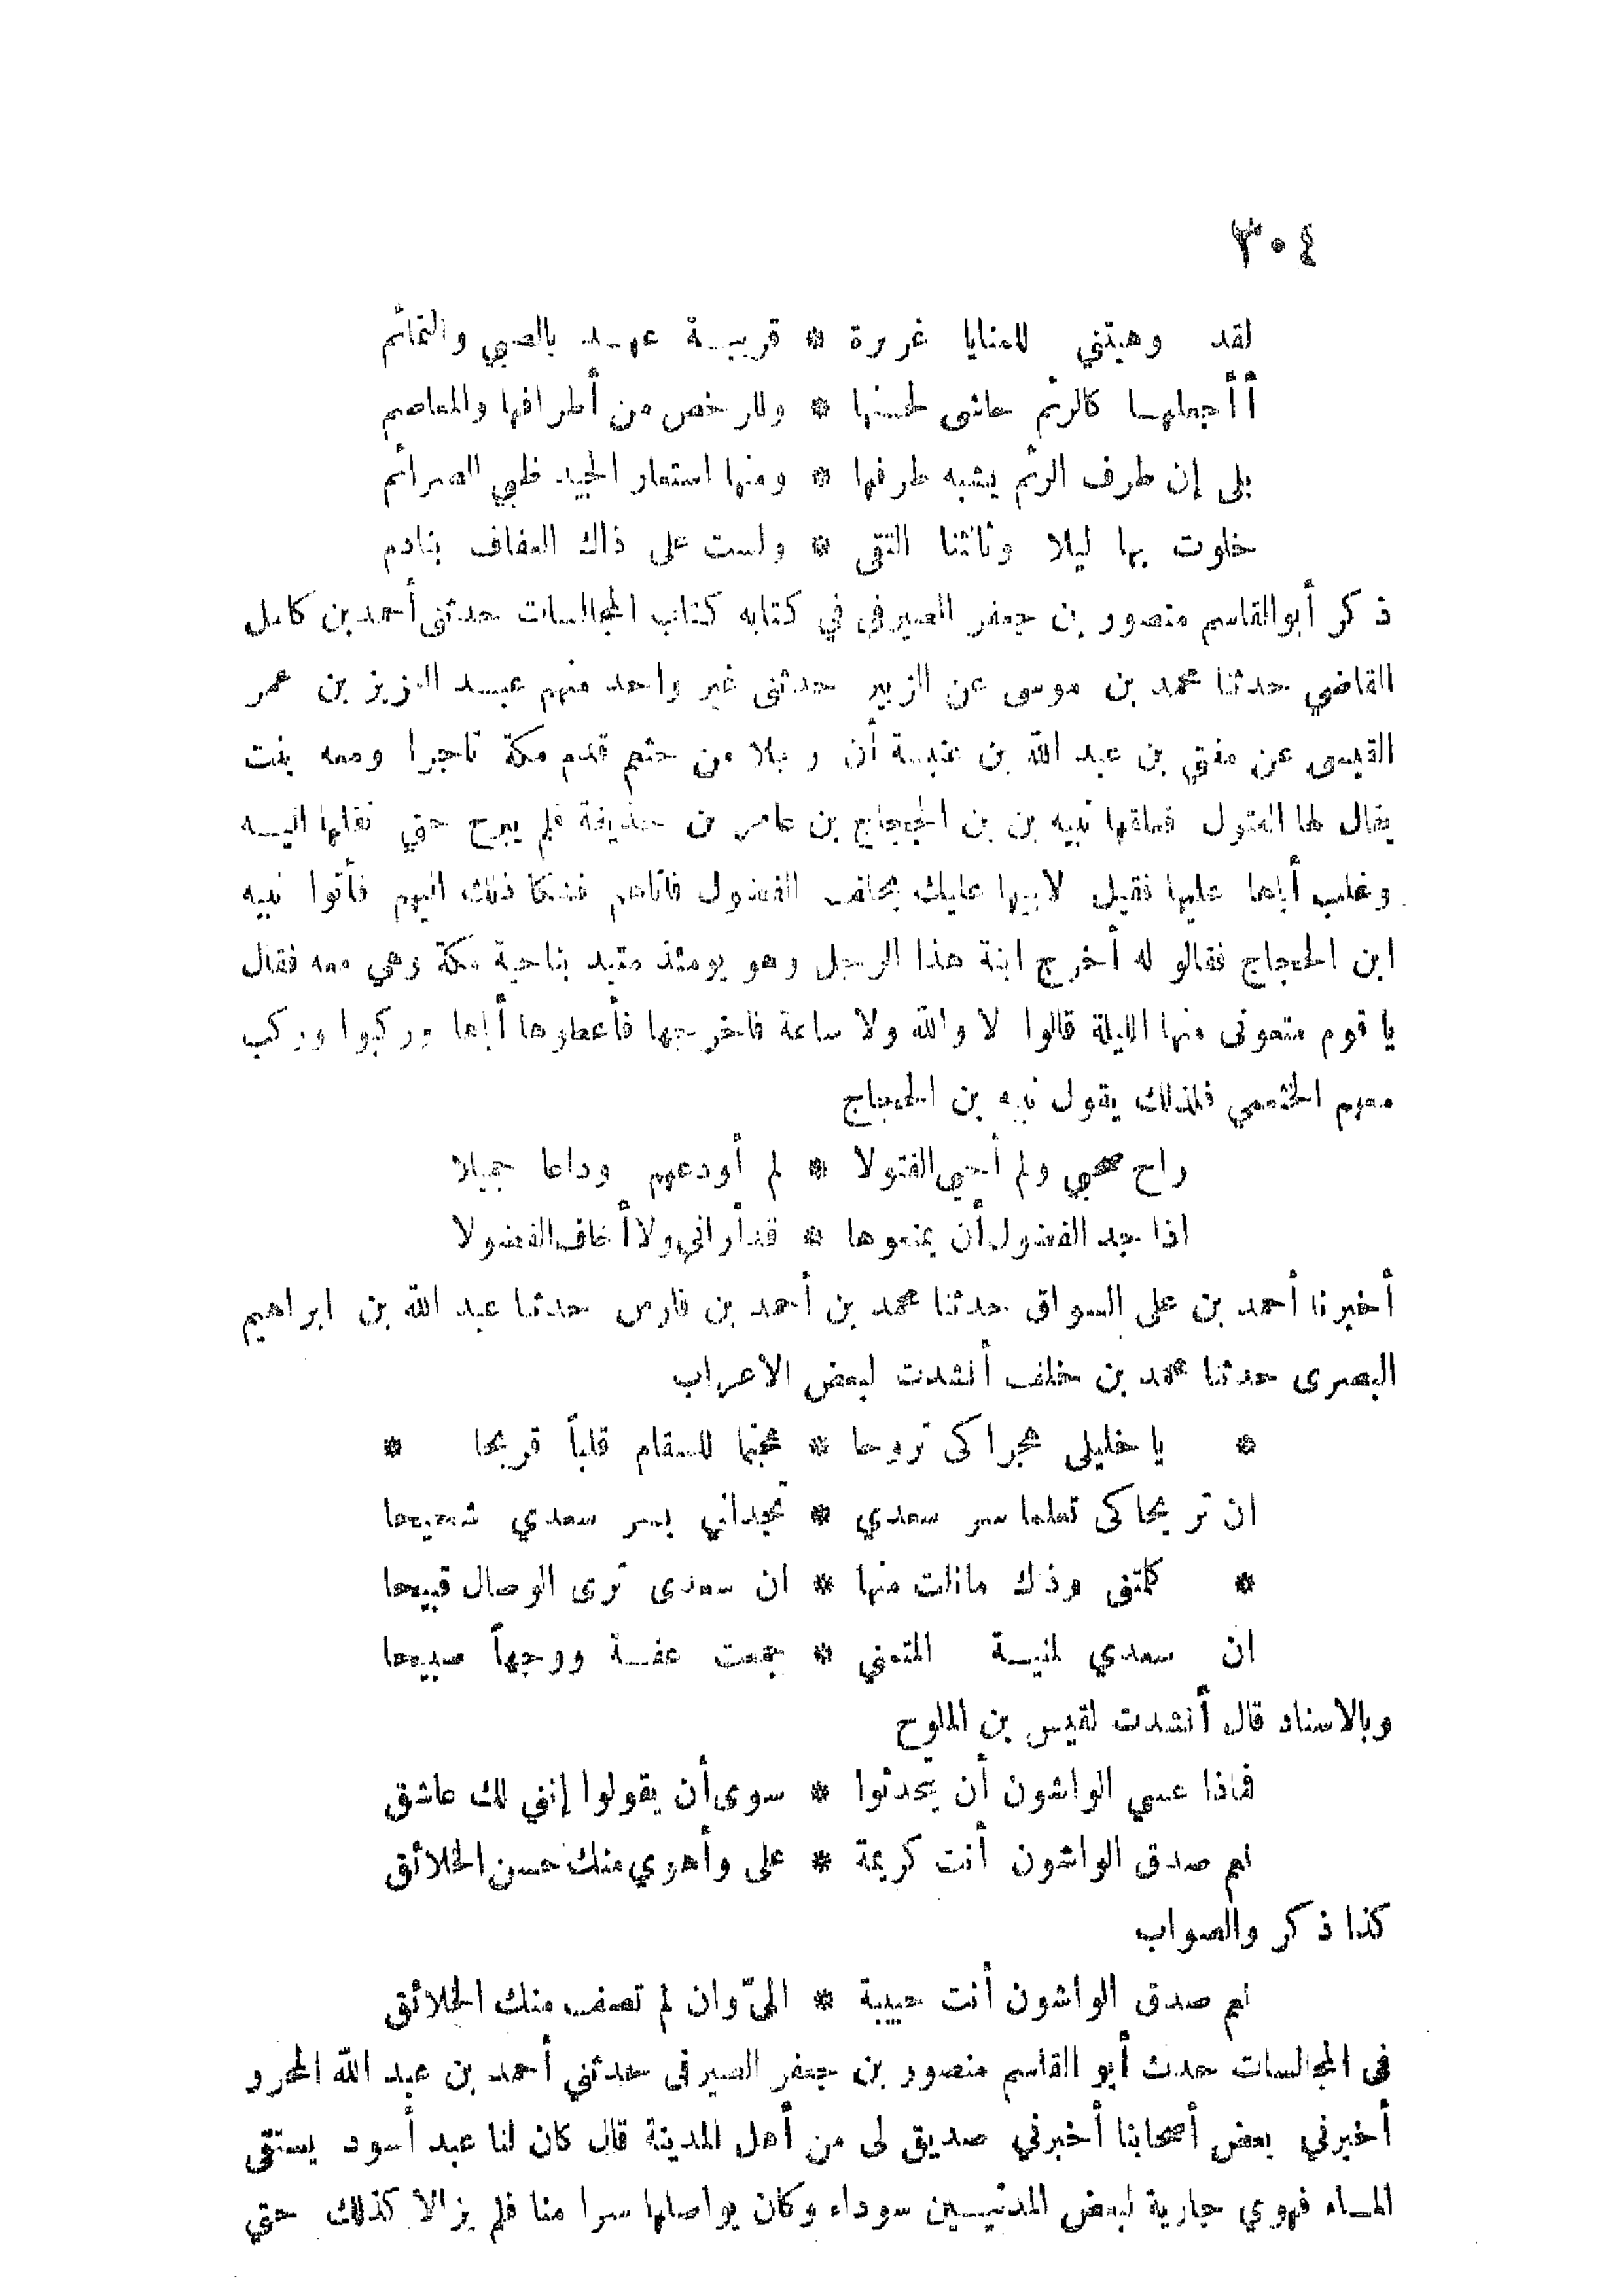 ٣٠٤
لقد وهبتني للمنايا غريرة * قريبة عهد بالصبي والتمائم
أأجعلها كالرئم حاشى لحسنها * وللرخص من أطرافها والمعاصم
بلى إن طرف الرئم يشبه طرفها * ومنها استعار الجيد ظبي الصرائم
خلوت بها ليلا وثالثنا التقى * ولست على ذاك العفاف بنادم
ذكر أبوالقاسم منصور بن جعفر الصيرفى في كتابه كتاب المجالسات حدثنى أحمد بن كامل
القاضي حدثنا محمد بن موسى عن الزبير حدثنى غير واحد منهم عبد العزيز بن عمر
القيسى عن مفتي بن عبد الله بن عنبسة أن رجلا من خثعم قدم مكة تاجرا ومعه بنت
يقال لها القتول فعلقها نبيه بن بن الحجاج بن عامر بن حذيفة فلم يبرح حتي نقلها اليه
وغلب أباها عليها فقيل لابيها عليك بحلف الفضول فاتاهم فشكا ذلك اليهم فأتوا نبيه
ابن الحجاج فقالو له أخرج ابنة هذا الرجل وهو يومئذ متبد بناحية مكة وهي معه فقال
يا قوم متعونى منها الليلة قالوا لا والله ولا ساعة فاخرجها فأعطوها أباها وركبوا وركب
معهم الخثعمي فلذلك يقول نبيه بن الحجاج
راح صحبي ولم أحي الفتولا * لم أودعهم وداعا جميلا
اذا جد الفضول أن يمنعوها * قد أراني ولا أخاف الفضولا
أخبرنا أحمد بن على السواق حدثنا محمد بن أحمد بن فارس حدثنا عبد الله بن ابراهيم
البصرى حدثنا محمد بن خلف أنشدت لبعض الاعراب
* يا خليلى هجرا كى تروحا * هجتما للسقام قلباً قريحا *
ان تريحا كى تعلما سر سعدي * تجداني بسر سعدي شحيحا
* كلمتنى وذك مانلت منها * ان سعدى ترى الوصال قبيحا
ان سعدي لمنية المتمني * جمعت عفة ووجهاً صبيحا
وبالاسناد قال أنشدت لقيس بن الملوح
فماذا عسي الواشون أن يتحدثوا * سوى أن يقولوا إنني لك عاشق
نعم صدق الواشون أنت كريمة * على وأهوي منك حسن الخلائق
كذا ذكر والصواب
نعم صدق الواشون أنت حبيبة * الىّ وان لم تصف منك الخلائق
فى المجالسات حدث أبو القاسم منصور بن جعفر الصيرفى حدثني أحمد بن عبد الله المحرر
أخبرني بعض أصحابنا أخبرني صديق لى من أهل المدينة قال كان لنا عبد أسود يستقى
الماء فهوي جارية لبعض المدنيين سوداء وكان يواصلها سرا منا فلم يزالا كذلك حتي